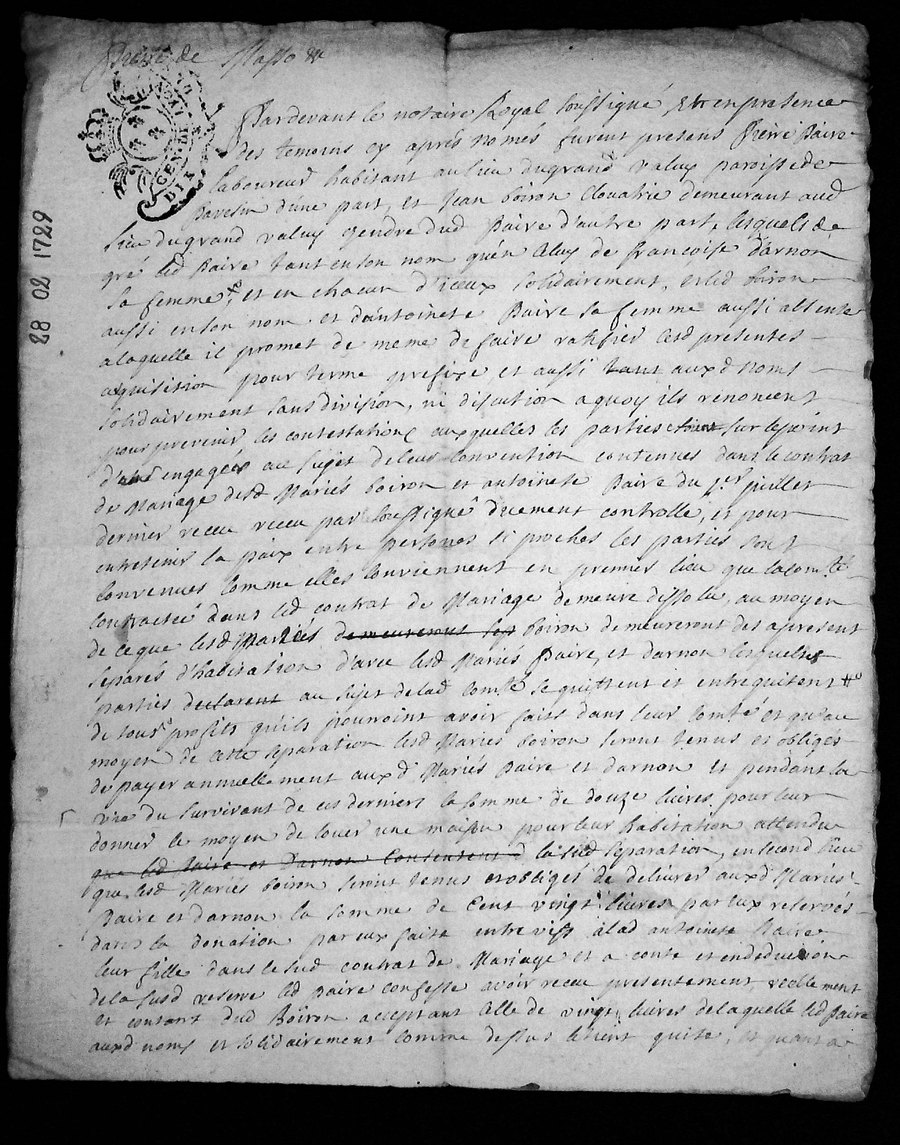 28 02 1729
GEN DI
Pardevant le notaire Royal soussigné, et en presence
des temoins cy aprés només furent presens Pierre Paire
laboureur habitant au lieu du grand valuy paroisse de
Pavesin d'une part, et Jean boiron Clouatrie demeurant aud
lieu du grand valuy gendre dud Paire d'autre part, lesquels de
gré led Paire tant en son nom qu'en celuy de francoise darnon
sa femme, et en chacun d'iceux solidairement, et led boiron
aussi en son nom et d'antoinete Paire sa femme aussi absente
a laquelle il promet de meme de faire ratifier lesd presentes
pour terme prefixe, et aussi tant auxd noms
solidairement sans division, ni discution a quoy ils renoncent
pour prevenir les contestations auxquelles les parties sur le point
d'etre engagées au sujet de leur Convention contenues dans le contrat
de Mariage desd Mariés boiron et antoinete Paire du 1er juillet
dernier receu receu par soussigné duement controlle, et pour
entretenir la paix entre personnes si proches les parties sont
Convenues Comme elles Conviennent en premier lieu que la com.té
Contractée dans led contrat de Mariage demeure dissolue, au moyen
de ce que lesd Mariés demeureront sep boiron demeureront des apresent
separés d'habitation d'avec lesd Mariés Paire, et darnon lesquelles
parties declarent au sujet de lad Comté se quittent et entrequitent
de tous profits qu'ils pouvoint avoir faits dans leur Comté et qu'au
moyen de cette separation lesd Mariés boiron seront tenus et obligés
de payer annuellement auxd Mariés Paire et darnon et pendant la
vie du survivant de ces derniers la somme de douze livres pour leur
donner le moyen de louer une maison pour leur habitation attendu
que led Paire et Darnon Consentent à la susd separation, en second lieu
que lesd Mariés boiron seront tenus et obligés de delivrer auxd Mariés
Paire et darnon la somme de Cent vingt livres par eux reservés
dans la donation par eux faite entre vifs à lad antoinete Paire
leur fille dans le susd contrat de Mariage et a conte et en deduction
de la susd reserve led Paire confesse avoir receu presentement reellement
et contant dud Boiron acceptant celle de vingt livres de laquelle led Paire
auxd noms et solidairement comme dessus le tient quite, et quant a